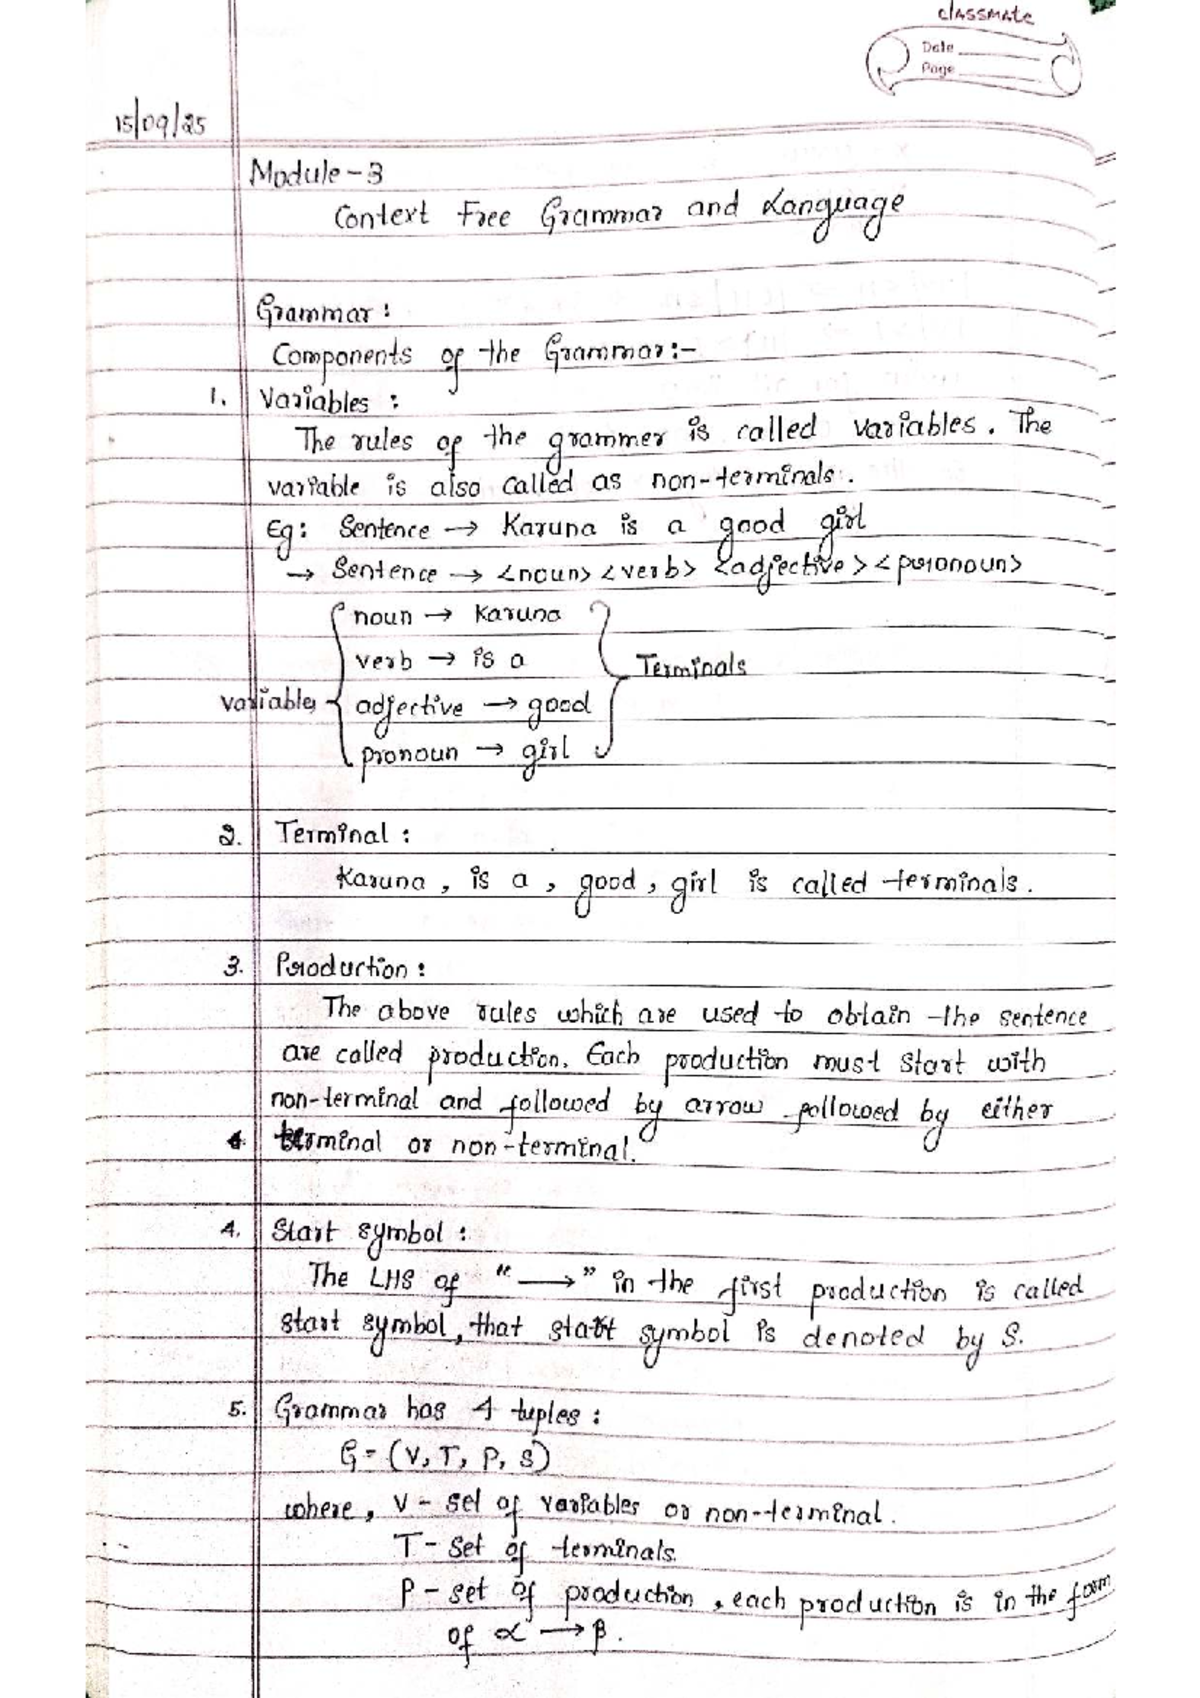 classmate
Date
Page
15/09/25
Module - 3
Context Free Grammar and Language
Grammar :
Components of the Grammar:-
1. Variables :
The rules of the grammer is called variables. The
variable is also called as non-terminals.
Eg: Sentence → Karuna is a good girl
→ Sentence → <noun> <verb> <adjective> <pronoun>
noun → Karuna
verb → is a
Terminals
variables
adjective → good
pronoun → girl
2. Terminal :
Karuna, is a, good, girl is called terminals.
3. Production :
The above rules which are used to obtain the sentence
are called production. Each production must start with
non-terminal and followed by arrow followed by either
4. terminal or non-terminal.
4. Start symbol :
The LHS of "⟶" in the first production is called
start symbol, that start symbol is denoted by S.
5. Grammar has 4 tuples :
G = (V, T, P, S)
where, V - set of variables or non-terminal.
T - set of terminals.
P - set of production, each production is in the form
of α → β.